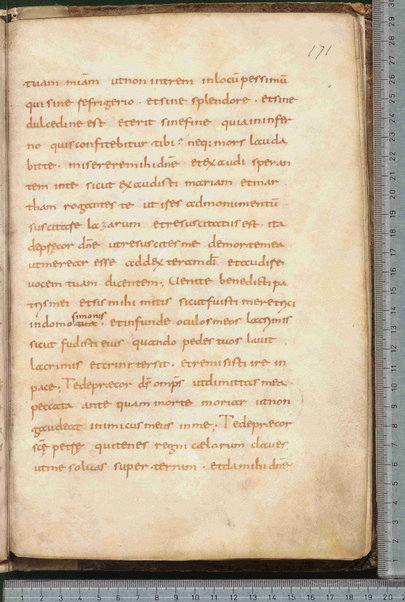 171
tuam miam ut non intrem in locū pessimū
qui sine refrigerio . et sine splendore . et sine
dulcedine ese et erit sine fine quia in infer
no quis confitebitur tibi neq; mors lauda
bit te . miserere mihi dn̄e et exaudi speran
tem in te sicut exaudisti mariam et mar
tham rogantes te ut ises ad monumentū
suscitare lazarum et resuscitatus est . ita
depręcor dn̄e ut resuscites me de morte mea
ut merear esse ad dexteram dī . et audire
vocem tuam dicentem ; Uenite benedicti pa
tris mei et sis mihi mitis sicut fuisti meretrici
in domo simonis . et infunde oculos meos lacrimis
sicut fudisti eius quando pedes tuos lauit
lacrimis et crine tersit . et remisisti ire in
pace ; Te deprecor dī omps ut dimittas mea
peccata ante quam morte moriar ut non
gaudeat inimicus meus in me ; Te deprecor
scē petre qui tenes regni cælorum claues
ut me soluas super terram . et da mihi dn̄e